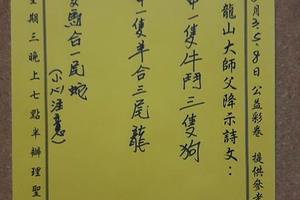 月3.5.8日 公益彩卷 提供參考
龍山大師父降示詩文：
中一隻牛鬥三隻狗
中一隻羊合三尾龍
馬合一尾蛇
(小心注意)
星期三晚上七點半辦理聖